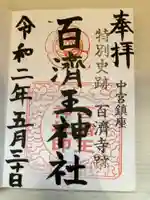 奉拝
中宮鎮座
特別史跡 百済寺跡
百濟王神社
令和二年五月三十日